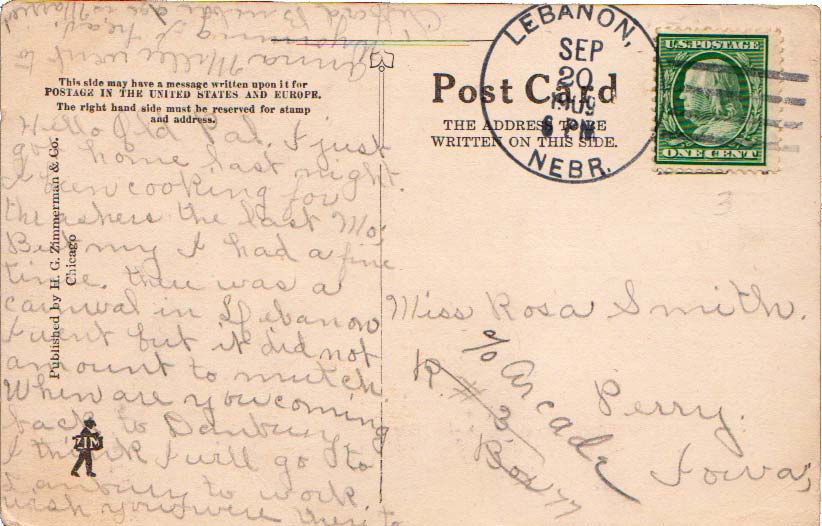 Clifford
Wyoming
Anna Miller went to
This side may have a message written upon it for
POSTAGE IN THE UNITED STATES AND EUROPE.
The right hand side must be reserved for stamp
and address.
Hello Old Pal. I just
got home last night.
been cooking for
thrashers the last Mo.
I had a fine
time. there was a
carnival in Lebanon
I went but it did not
amount to mutch.
When are you coming
back to Danbury
I think I will go to
Danbury to work.
wish you were there to
Published by H. G. Zimmerman & Co.
Chicago
ZIM
Post Card
THE ADDRESS TO BE
WRITTEN ON THIS SIDE.
LEBANON,
SEP
20
1909
6 PM
NEBR.
U.S. POSTAGE
ONE CENT
3
Miss Rosa Smith.
c/o Arcade
R. # 3
Box 77
Perry.
Iowa,